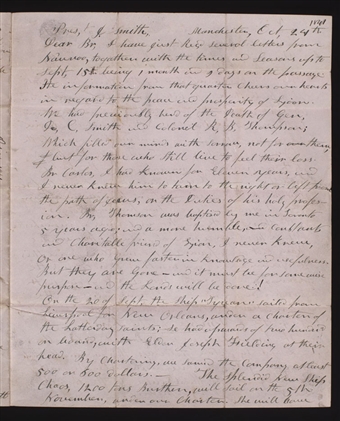 1841
Pres,t J. Smith, Manchester, Oct, 24th
Dear Br, I have just Rec several Letters from
Nauvoo, together with the times and Seasons up to
Sept. 15th being 1 month and 9 days on the passage.
The information from that quarter Cheers our hearts
in regard to the peace and prosperity of Zion.
We had previously heard of the Death of Gen,
D, C. Smith and Colonel R. B. Thompson;
Which filled our minds with sorrow, not for them,
but for those who still live to feel their loss.
Don Carlos, I had Known for Eleven years, and
I never knew him to turn to the right or left from
the path of virtue, or the Duties of his holy profes-
sion. Br, Thomson was baptised by me in
5 years ago, and a more humble, constant
and Charitable friend of Zion, I never knew,
Or one who grew faster in knowledge and usefulness.
But they are Gone — and it must be for some wise
purpose — and the Lord's will be done!
On the 20 of Sept. the Ship "Tyrean" sailed from
Liverpool for New Orleans, under a Charter of
the Latterday saints; She had upwards of two hundred
on board, with Elder Joseph Fielding at their
head. By Chartering, we saved the Company at least
500 or 600 dollars. — The Splendid New Ship
Chaos, 1200 tons Burthen, will sail on the 5th
November, under our Charter She will have